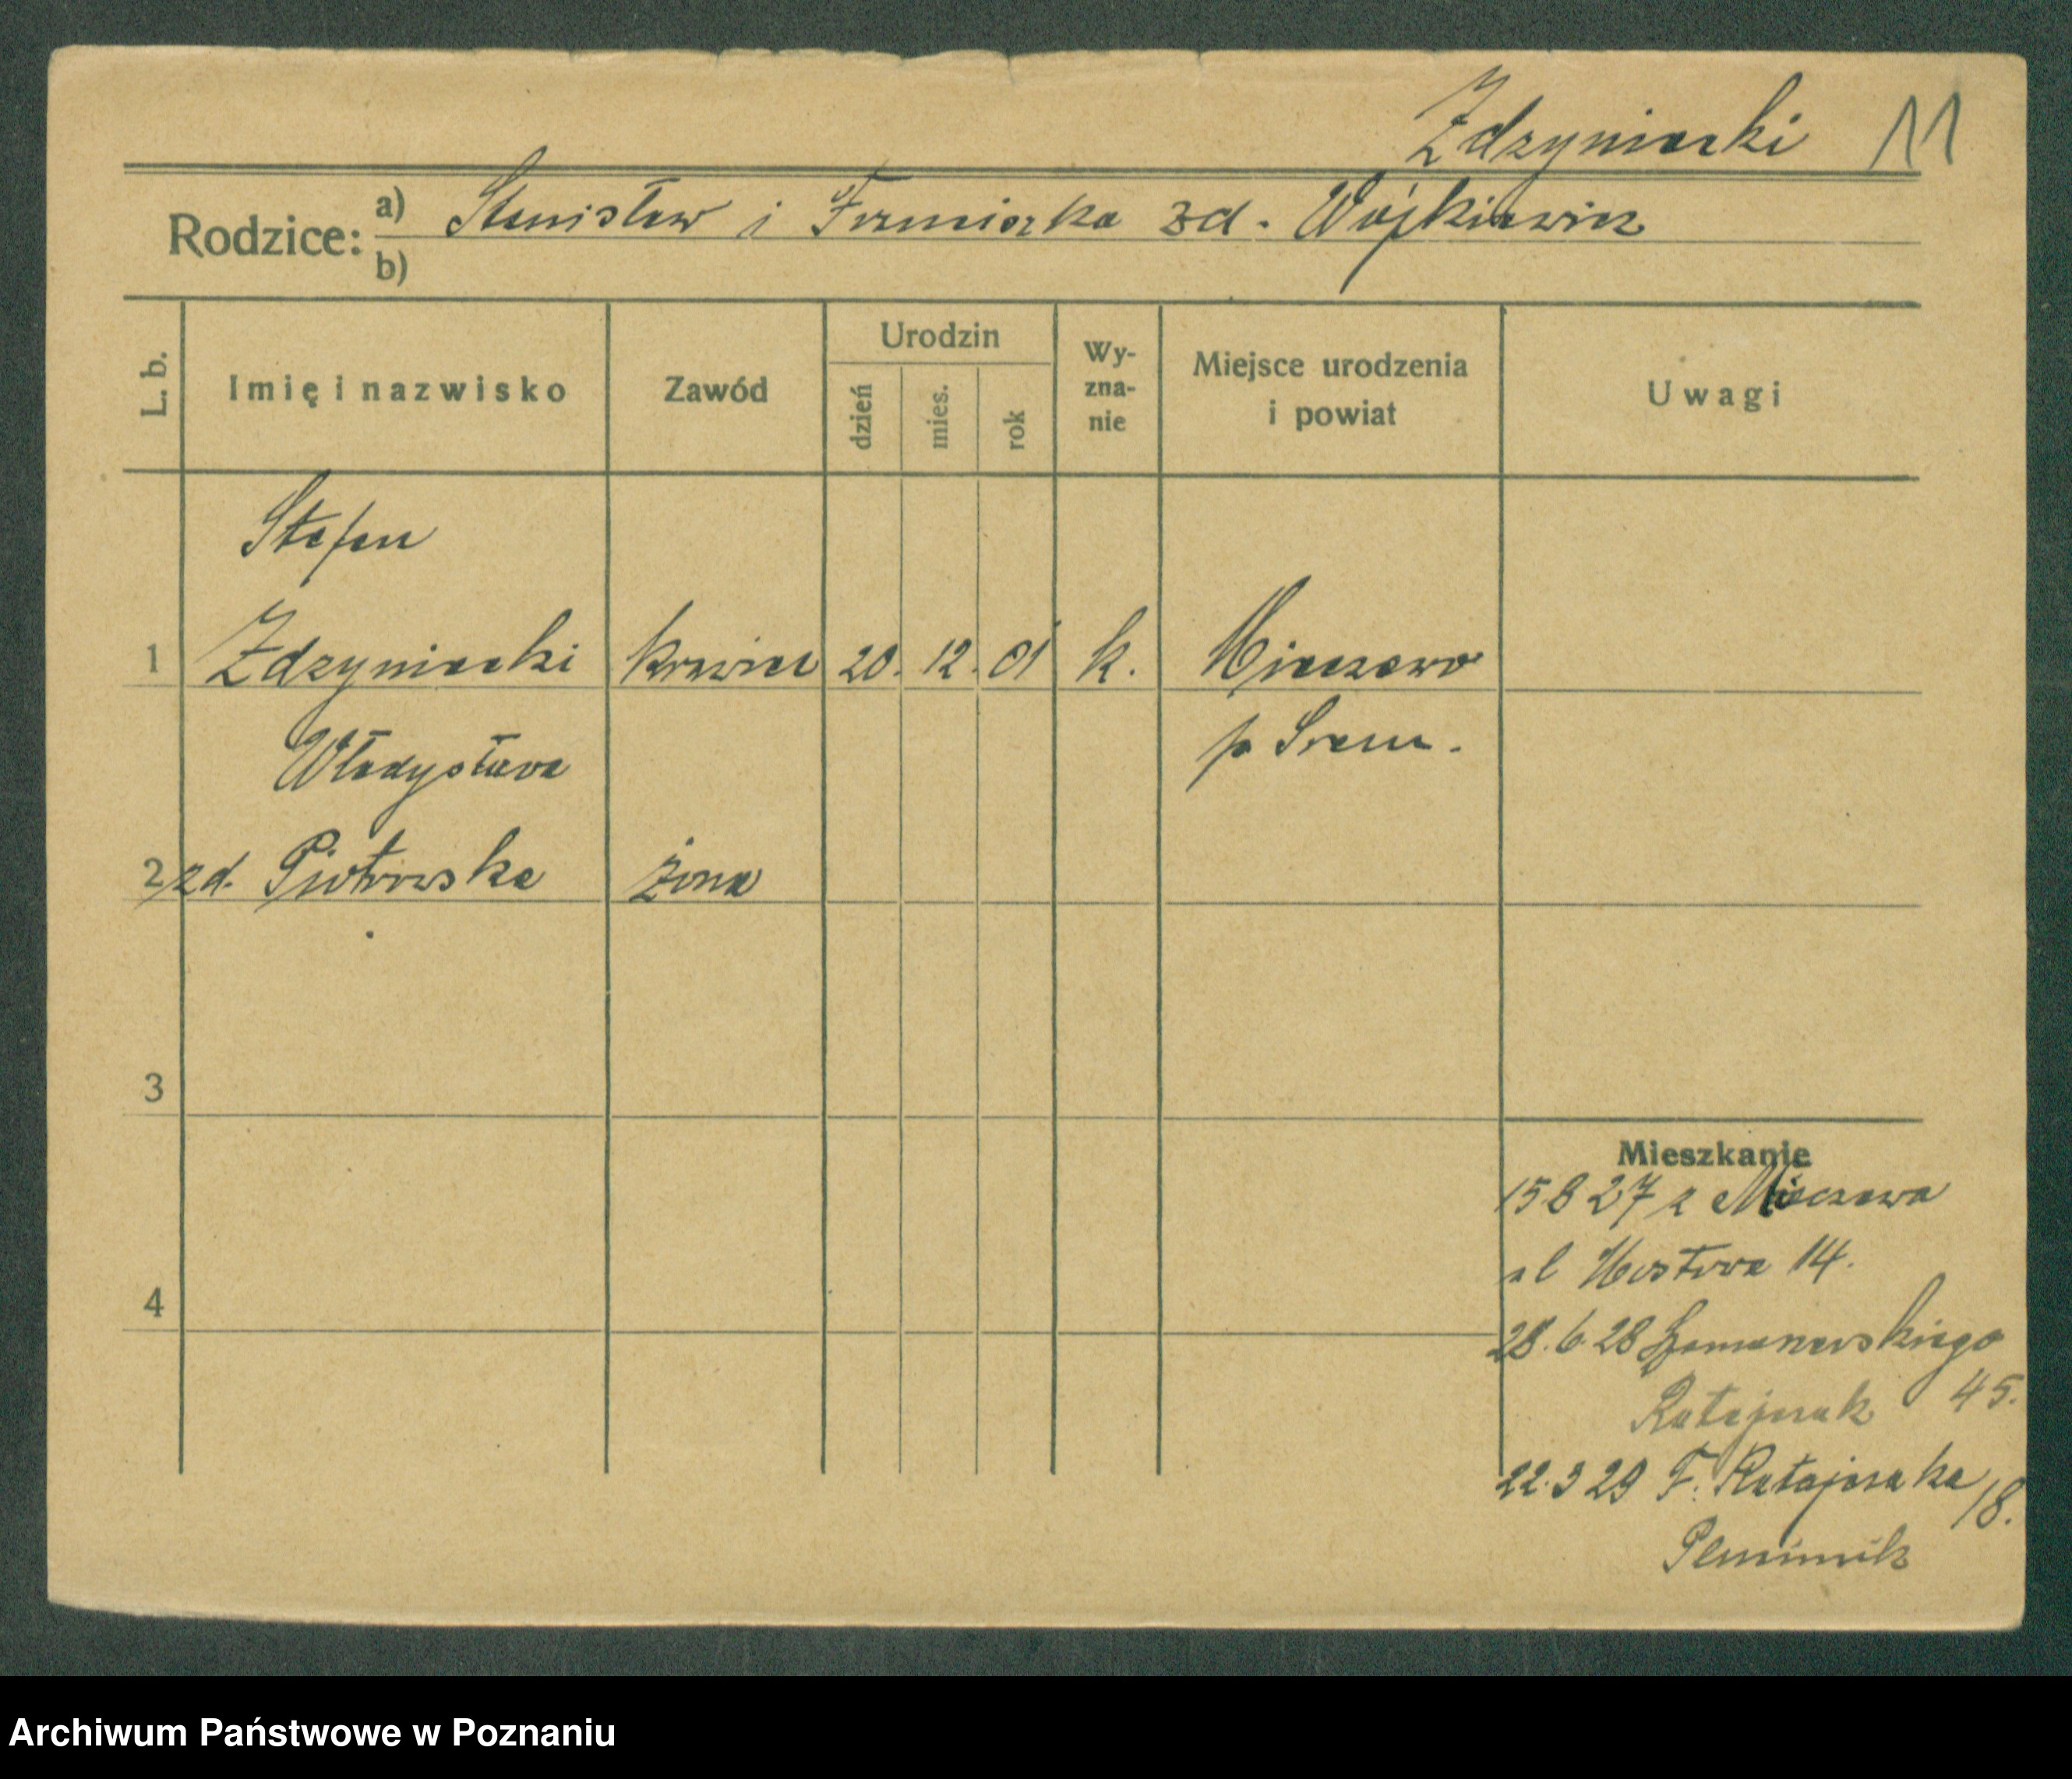 Zdzyniecki 11
Rodzice: a) Stanisław i Franciszka zd. Wójkiewicz
b)
L. b. Imię i nazwisko Zawód Urodzin dzień mies. rok Wy-zna-nie Miejsce urodzenia i powiat Uwagi
Stefan
1 Zdzyniecki krawiec 20. 12. 01 k. Mieczewo
Władysława p Srem.
2 zd. Piotrowska żona
3
Mieszkanie
15 8 27 z Mieczewa
4
ul Mostowa 14.
28. 6. 28 Szamarzewskiego 45.
Ratajczak
22. 3 29 F. Ratajczaka 18.
Archiwum Państwowe w Poznaniu